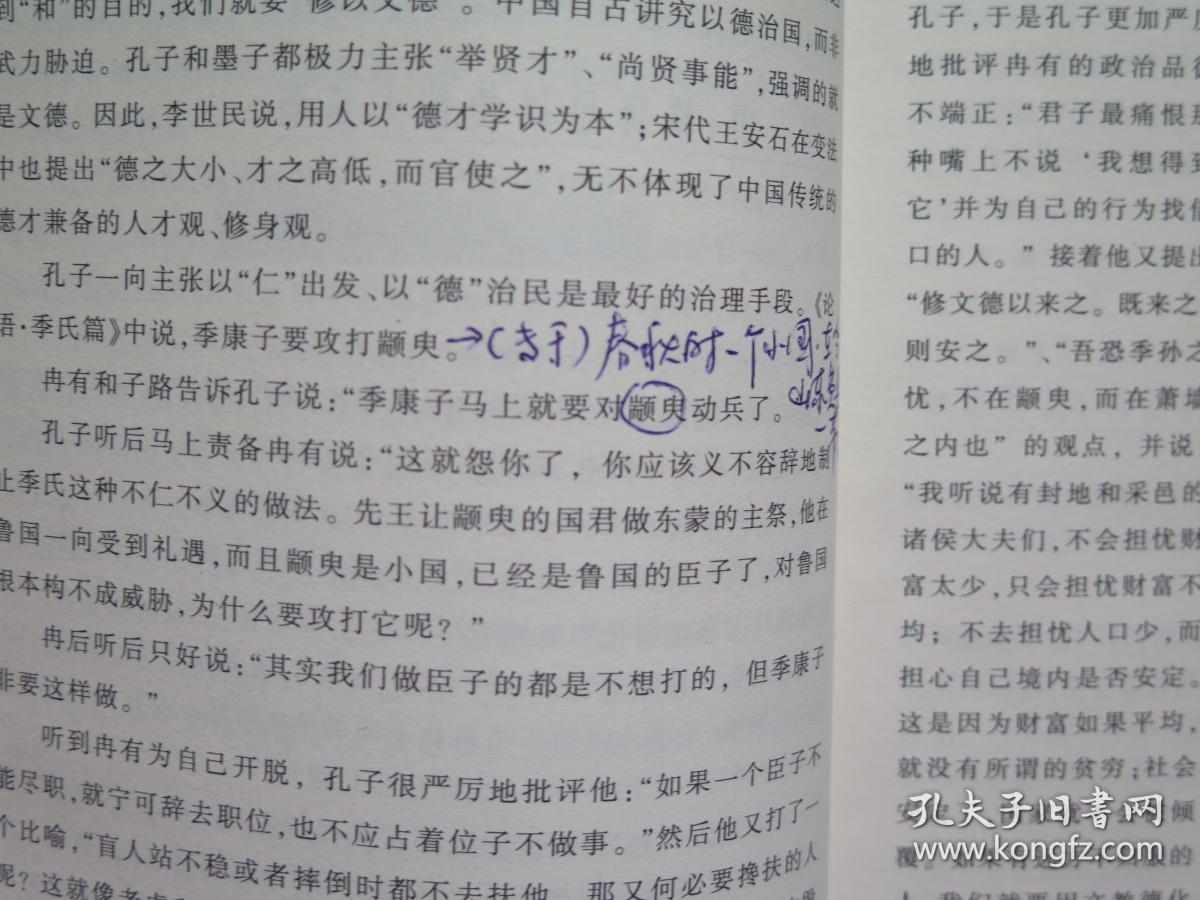 到“和”的目的,我们就要“修以文德”。中国自古讲究以德治国,而非
武力胁迫。孔子和墨子都极力主张“举贤才”、“尚贤事能”,强调的就
是文德。因此,李世民说,用人以“德才学识为本”;宋代王安石在变法
中也提出“德之大小、才之高低,而官使之”,无不体现了中国传统的
德才兼备的人才观、修身观。
孔子一向主张以“仁”出发、以“德”治民是最好的治理手段。《论
语·季氏篇》中说,季康子要攻打颛臾。
→( 于)春秋时一个小国,在
山东
冉有和子路告诉孔子说:“季康子马上就要对颛臾动兵了。
孔子听后马上责备冉有说:“这就怨你了,你应该义不容辞地制
止季氏这种不仁不义的做法。先王让颛臾的国君做东蒙的主祭,他在
鲁国一向受到礼遇,而且颛臾是小国,已经是鲁国的臣子了,对鲁国
根本构不成威胁,为什么要攻打它呢?”
冉后听后只好说:“其实我们做臣子的都是不想打的,但季康子
非要这样做。”
听到冉有为自己开脱,孔子很严厉地批评他:“如果一个臣子不
能尽职,就宁可辞去职位,也不应占着位子不做事。”然后他又打了一
个比喻,“盲人站不稳或者摔倒时都不去扶他,那又何必要搀扶的人
呢?这就像老虎
孔子,于是孔子更加严厉
地批评冉有的政治品德
不端正:“君子最痛恨那
种嘴上不说‘我想得到
它’并为自己的行为找借
口的人。”接着他又提出
“修文德以来之。既来之
则安之。”、“吾恐季孙之
忧,不在颛臾,而在萧墙
之内也”的观点,并说
“我听说有封地和采邑的
诸侯大夫们,不会担忧财
富太少,只会担忧财富不
均;不去担忧人口少,而
担心自己境内是否安定。
这是因为财富如果平均,
就没有所谓的贫穷;社会
安 倾
覆。如果 的
人,我们就要用文教德化
孔夫子旧书网
www.kongfz.com